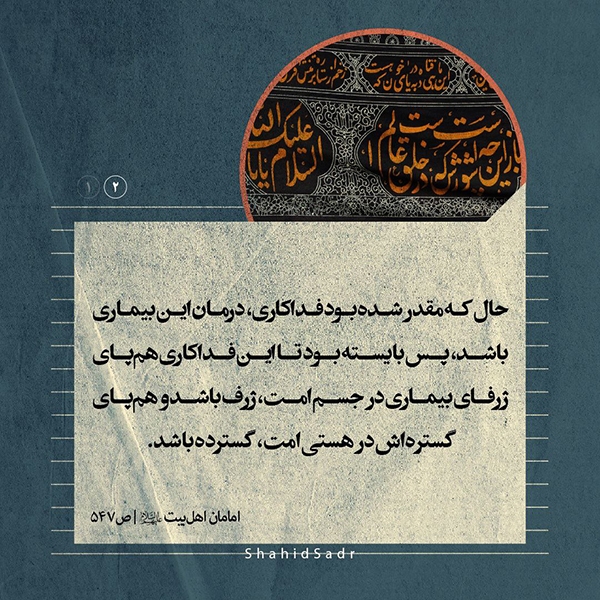 باز این چه شورش است که در خلق عالم
السلام علیک
۱ ۲
حال که مقدر شده بود فداکاری، درمان این بیماری
باشد، پس بایسته بود تا این فداکاری هم‌پای
ژرفای بیماری در جسم امت، ژرف باشد و هم‌پای
گستره‌اش در هستی امت، گسترده باشد.
امامان اهل‌بیت علیهم‌السلام | ص۵۴۷
ShahidSadr